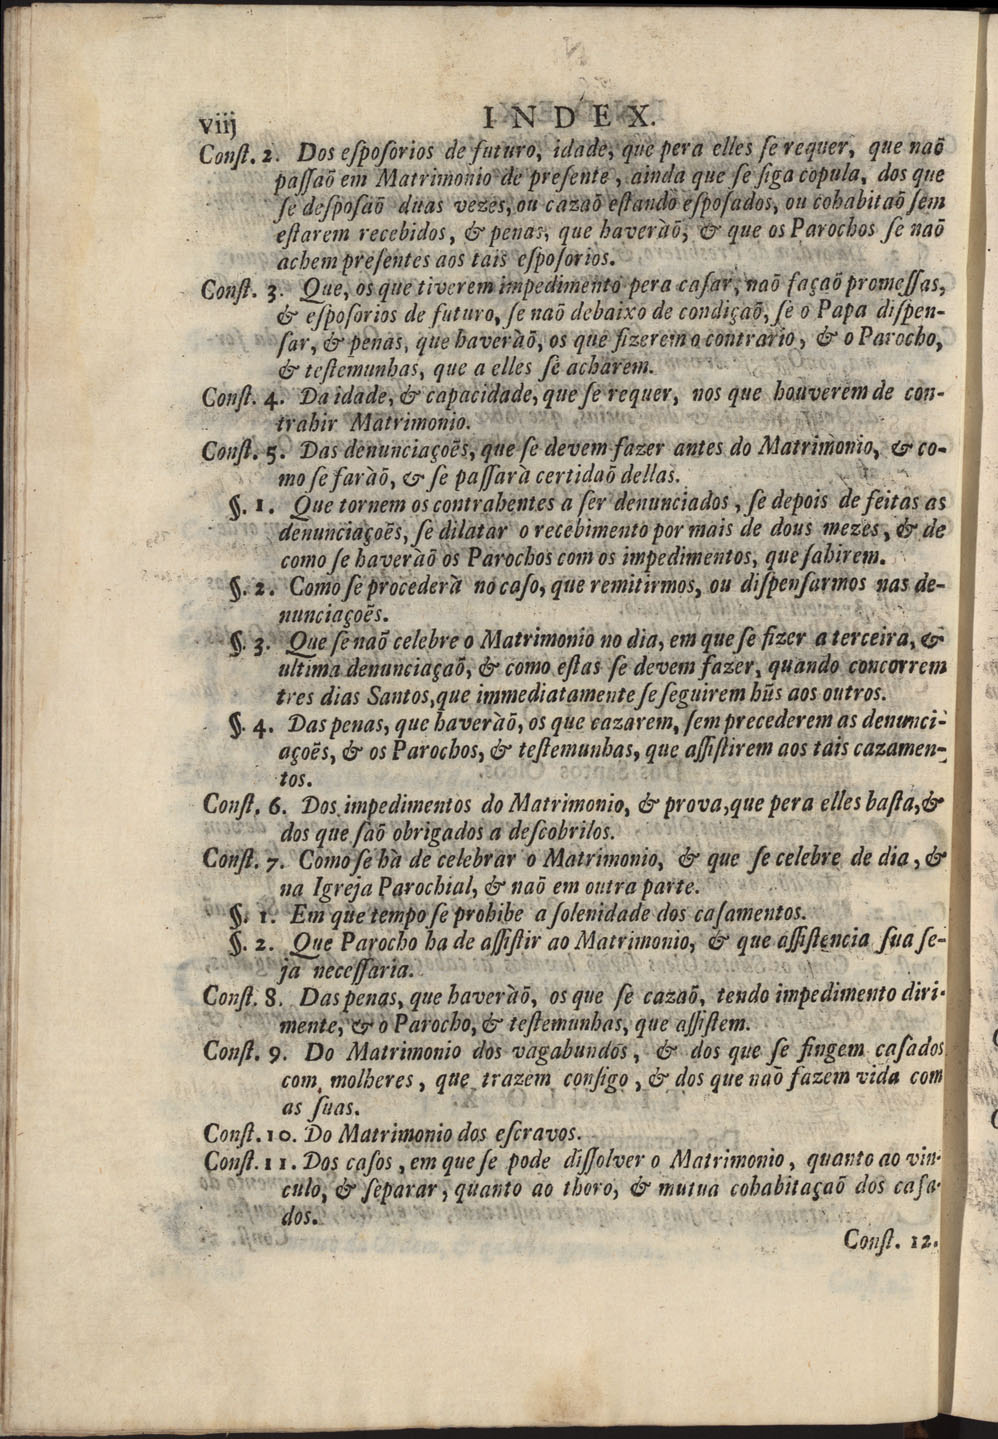 viij
INDEX.
Conſt. 2. Dos eſpoſorios de futuro, idade, que pera elles ſe requer, que naõ
paſſaõ em Matrimonio de preſente, ainda que ſe ſiga copula, dos que
ſe deſpoſaõ duas vezes, ou cazaõ eſtando eſpoſados, ou cohabitaõ ſem
eſtarem recebidos, & penas, que haveràõ, & que os Parochos ſe naõ
achem preſentes aos tais eſpoſorios.
Conſt. 3. Que, os que tiverem impedimento pera caſar, naõ façaõ promeſſas,
& eſpoſorios de futuro, ſe naõ debaixo de condiçaõ, ſe o Papa diſpen-
ſar, & penas, que haveràõ, os que fizerem o contrario, & o Parocho,
& teſtemunhas, que a elles ſe acharem.
Conſt. 4. Da idade, & capacidade, que ſe requer, nos que houverem de con-
trahir Matrimonio.
Conſt. 5. Das denunciaçoẽs, que ſe devem fazer antes do Matrimonio, & co-
mo ſe faràõ, & ſe paſſarà certidaõ dellas.
§. 1. Que tornem os contrahentes a ſer denunciados, ſe depois de feitas as
denunciaçoẽs, ſe dilatar o recebimento por mais de dous mezes, & de
como ſe haveràõ os Parochos com os impedimentos, que ſahirem.
§. 2. Como ſe procederà no caſo, que remitirmos, ou diſpenſarmos nas de-
nunciaçoẽs.
§. 3. Que ſe naõ celebre o Matrimonio no dia, em que ſe fizer a terceira, &
ultima denunciaçaõ, & como eſtas ſe devem fazer, quando concorrem
tres dias Santos, que immediatamente ſe ſeguirem hũs aos outros.
§. 4. Das penas, que haveràõ, os que cazarem, ſem precederem as denunci-
açoẽs, & os Parochos, & teſtemunhas, que aſſiſtirem aos tais cazamen-
tos.
Conſt. 6. Dos impedimentos do Matrimonio, & prova, que pera elles baſta, &
dos que ſaõ obrigados a deſcobrilos.
Conſt. 7. Como ſe hà de celebrar o Matrimonio, & que ſe celebre de dia, &
na Igreja Parochial, & naõ em outra parte.
§. 1. Em que tempo ſe prohibe a ſolenidade dos caſamentos.
§. 2. Que Parocho ha de aſſiſtir ao Matrimonio, & que aſſiſtencia ſua ſe-
ja neceſſaria.
Conſt. 8. Das penas, que haveràõ, os que ſe cazaõ, tendo impedimento diri-
mente, & o Parocho, & teſtemunhas, que aſſiſtem.
Conſt. 9. Do Matrimonio dos vagabundos, & dos que ſe fingem caſados
com molheres, que trazem conſigo, & dos que naõ fazem vida com
as ſuas.
Conſt. 10. Do Matrimonio dos eſcravos.
Conſt. 11. Dos caſos, em que ſe pode diſſolver o Matrimonio, quanto ao vin-
culo, & ſeparar, quanto ao thoro, & mutua cohabitaçaõ dos caſa-
dos.
Conſt. 12.